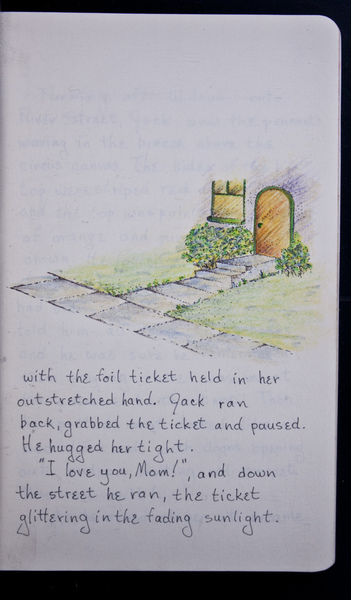 with the foil ticket held in her
outstretched hand. Jack ran
back, grabbed the ticket and paused.
He hugged her tight.
"I love you, Mom!", and down
the street he ran, the ticket
glittering in the fading sunlight.